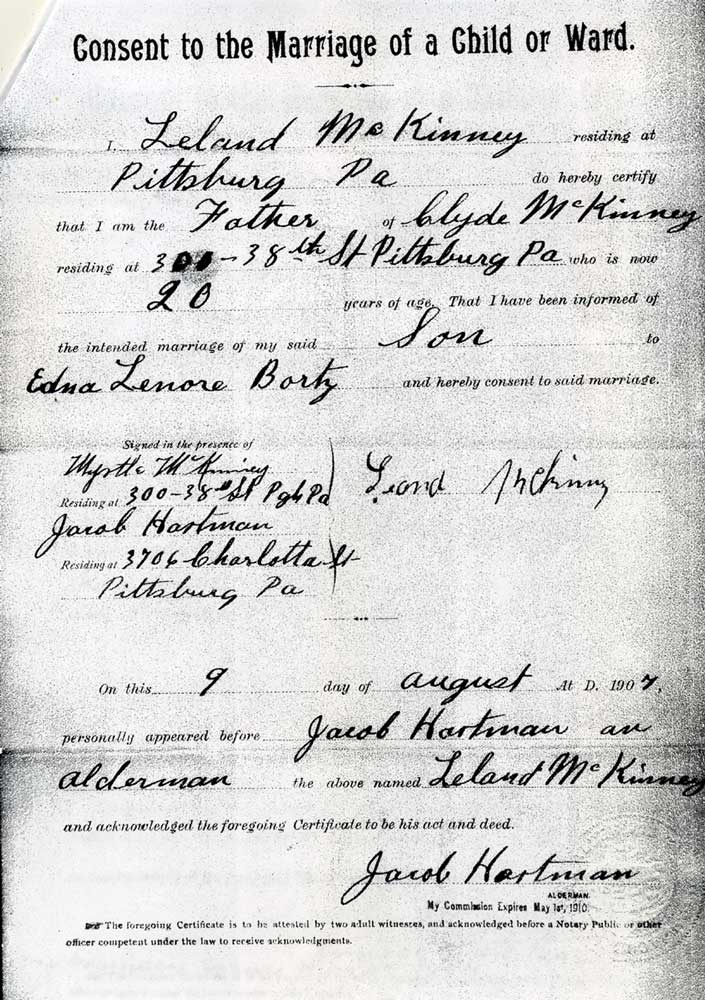 Consent to the Marriage of a Child or Ward.
I, Leland McKinney residing at
Pittsburg Pa do hereby certify
that I am the Father of Clyde McKinney
residing at 300-38th St Pittsburg Pa who is now
20 years of age. That I have been informed of
the intended marriage of my said Son to
Edna Lenore Borty and hereby consent to said marriage.
Signed in the presence of
Myrtle McKinney
Residing at 300-38th St Pgh Pa
Leand McKinny
Jacob Hartman
Residing at 3706 Charlotta St
Pittsburg Pa
On this 9 day of august At D. 1907,
personally appeared before Jacob Hartman an
alderman the above named Leland McKinney
and acknowledged the foregoing Certificate to be his act and deed.
Jacob Hartman
ALDERMAN.
My Commission Expires May 1st, 1910.
The foregoing Certificate is to be attested by two adult witnesses, and acknowledged before a Notary Public or other
officer competent under the law to receive acknowledgments.